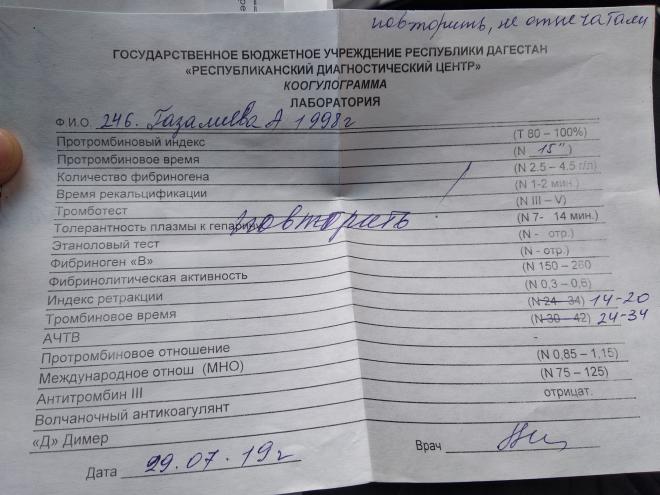 повторить, не отпечатали
ГОСУДАРСТВЕННОЕ БЮДЖЕТНОЕ УЧРЕЖДЕНИЕ РЕСПУБЛИКИ ДАГЕСТАН
«РЕСПУБЛИКАНСКИЙ ДИАГНОСТИЧЕСКИЙ ЦЕНТР»
КООГУЛОГРАММА
ЛАБОРАТОРИЯ
Ф И.О. 246. Газалиева А 1998г
Протромбиновый индекс (Т 80 – 100%)
Протромбиновое время (N 15")
Количество фибриногена (N 2.5 – 4.5 г/л)
Время рекальцификации (N 1-2 мин.)
Тромботест (N III – V)
Толерантность плазмы к гепарину (N 7- 14 мин.)
повторить!
Этаноловый тест (N - отр.)
Фибриноген «В» (N - отр.)
Фибринолитическая активность (N 150 – 260
Индекс ретракции (N 0,3 – 0,6)
Тромбиновое время (N 24 – 34) 14-20
АЧТВ (N 30 – 42) 24-34
Протромбиновое отношение -
Международное отнош (МНО) (N 0,85 – 1,15)
Антитромбин III (N 75 – 125)
Волчаночный антикоагулянт отрицат.
«Д» Димер
Дата 29.07.19г Врач